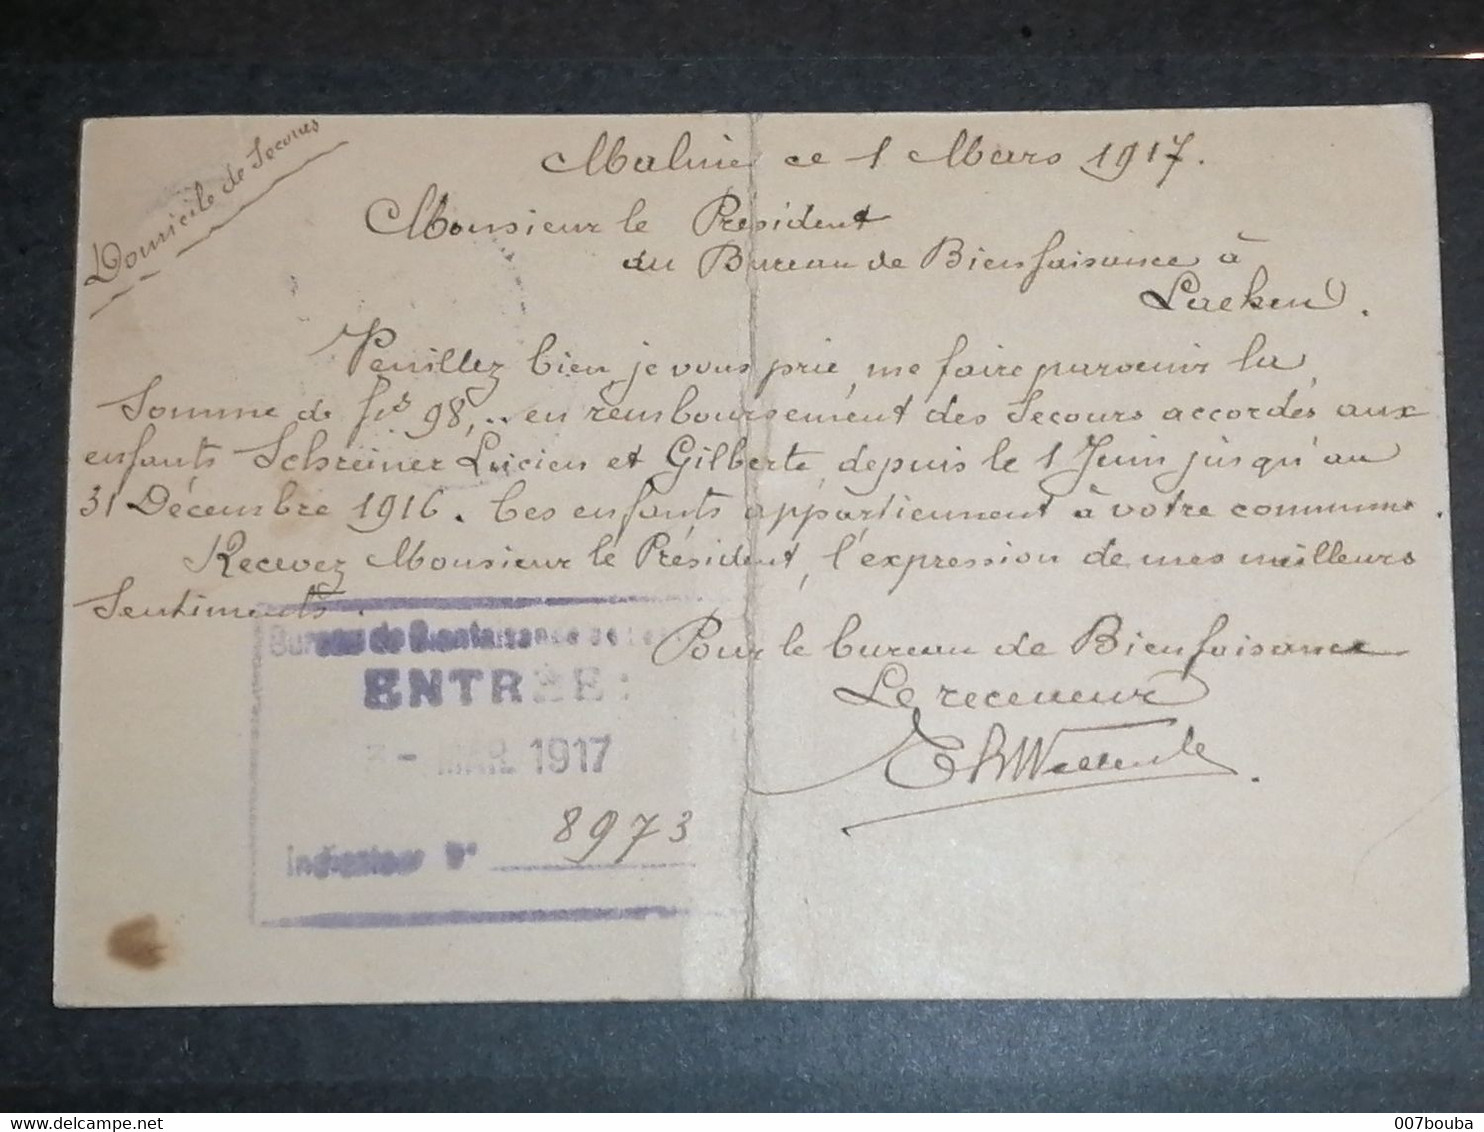 Domicile de Secours
Malines ce 1 Mars 1917.
Monsieur le Président
du Bureau de Bienfaisance à
Laeken.
Veuillez bien, je vous prie, me faire parvenir la
Somme de frs 98,.. en remboursement des Secours accordés aux
enfants Schreiner Lucien et Gilberte, depuis le 1 Juin jusqu'au
31 Décembre 1916. Ces enfants appartiennent à votre commune.
Recevez Monsieur le Président, l'expression de mes meilleurs
Sentiments.
Pour le bureau de Bienfaisance
Le receveur
Bureau de Bienfaisance de
ENTRÉE:
3 - MAR 1917
Indicateur N° 8973
delcampe.net
007bouba